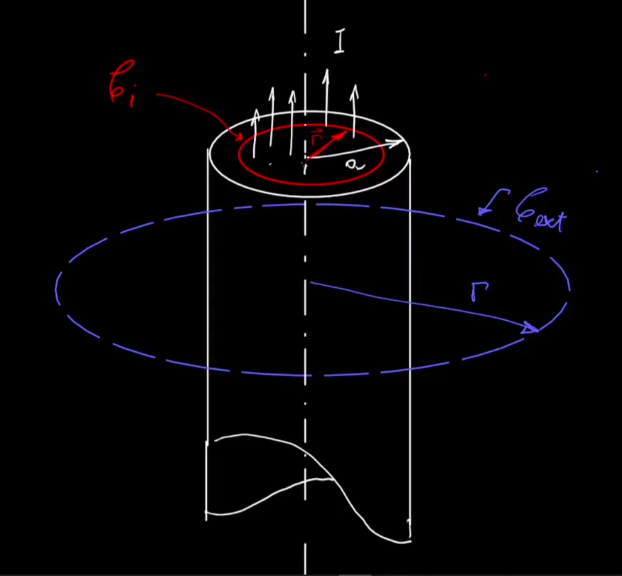 I
C_i
r⃗
a
C_ext
r